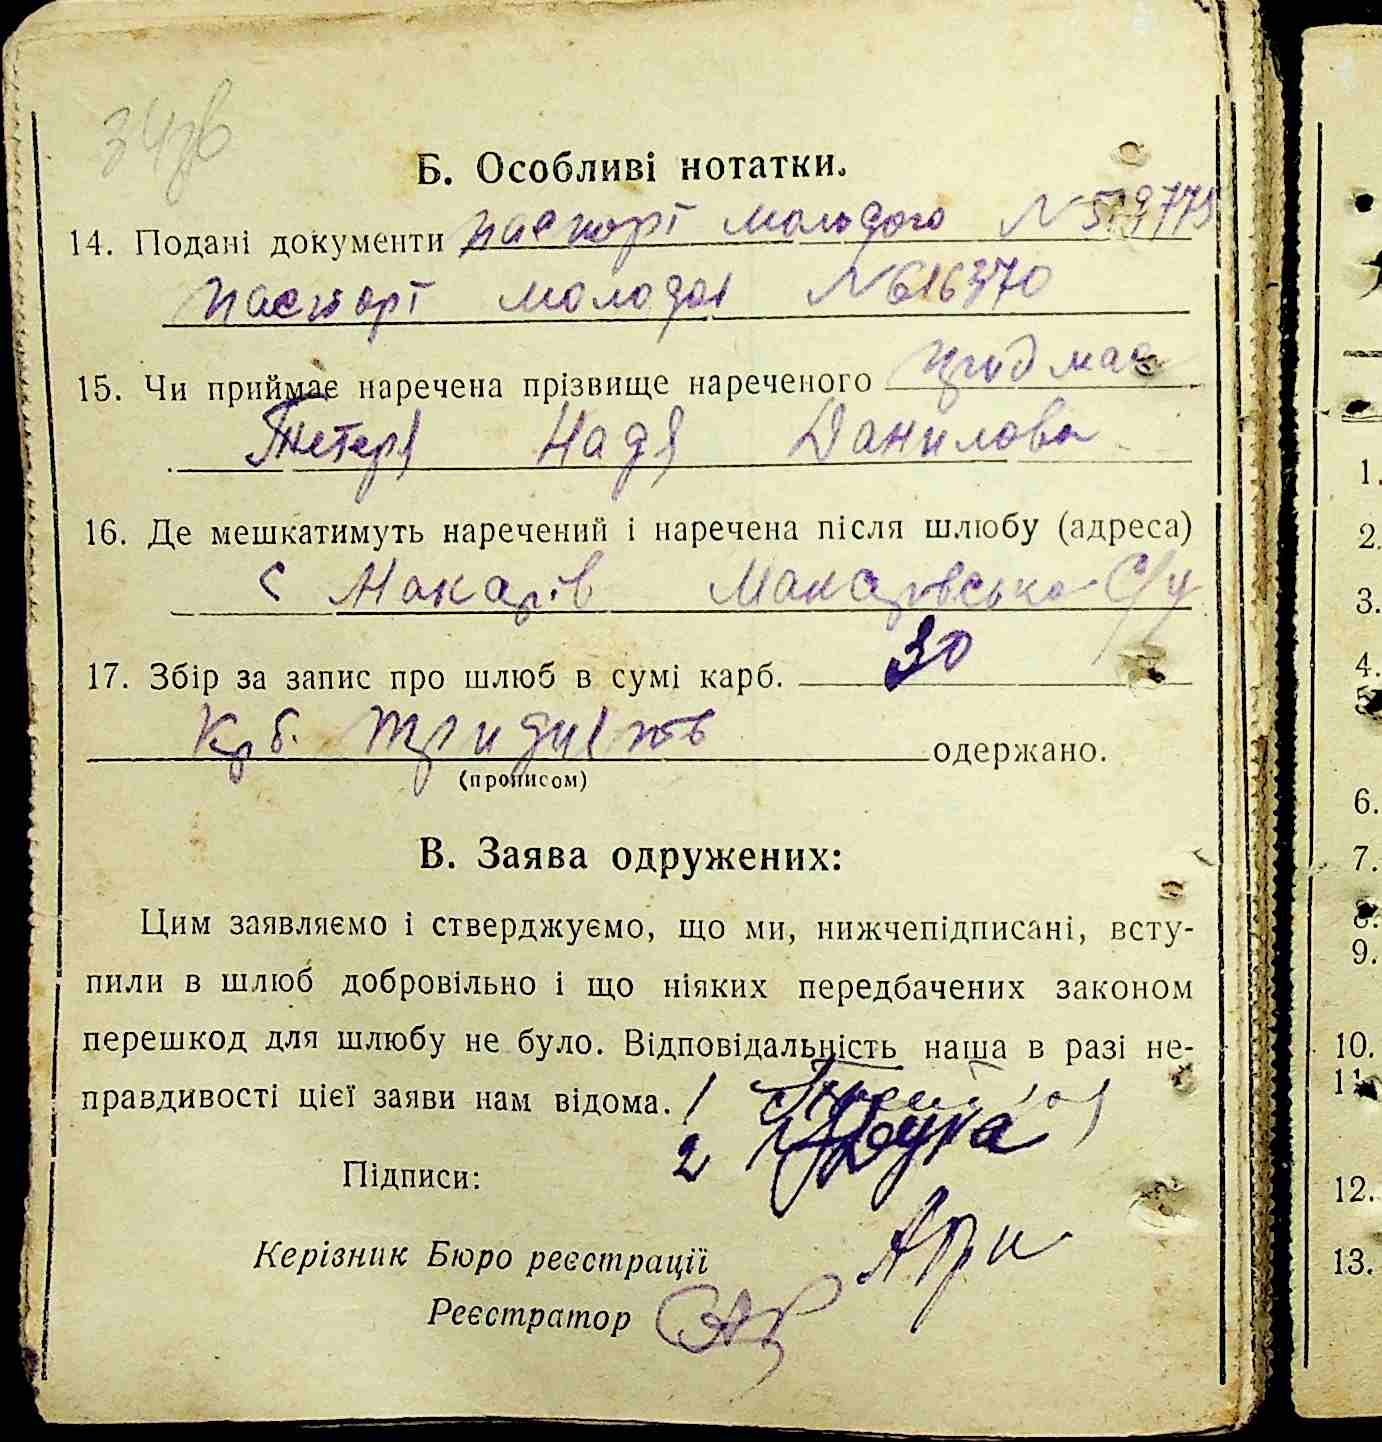 Б. Особливі нотатки.
14. Подані документи паспорт молодого N 519775
паспорт молодої N 616370
15. Чи приймає наречена прізвище нареченого
Тетеря Надя Данилова
16. Де мешкатимуть наречений і наречена після шлюбу (адреса)
с Макарів Макарівська С/у
17. Збір за запис про шлюб в сумі карб. 30
крб. тридцять одержано.
(прописом)
В. Заява одружених:
Цим заявляємо і стверджуємо, що ми, нижчепідписані, всту-
пили в шлюб добровільно і що ніяких передбачених законом
перешкод для шлюбу не було. Відповідальність наша в разі не-
правдивості цієї заяви нам відома. 1
2
Підписи:
Керівник Бюро реєстрації
Реєстратор
1.
2.
3.
4.
5.
6.
7.
8.
9.
10.
11.
12.
13.